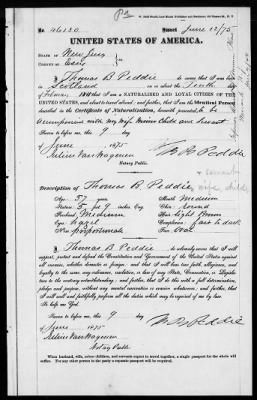 No. 46130 Issued June 12/75
UNITED STATES OF AMERICA.
STATE OF New Jersey
COUNTY OF Essex
I, Thomas B. Peddie do swear that I was born
in Scotland on or about the Tenth day of
February, 18; that I am a NATURALIZED AND LOYAL CITIZEN OF THE
UNITED STATES, and about to travel abroad; and further, that I am the Identical Person
described in the Certificate of Naturalization, herewith presented, to be
accompanied with my Wife Minor Child and Servant
Sworn to before me this 9 day
of June 1875
Notary Public.
T B Peddie
Description of Thomas B. Peddie
Age: 57 years
Stature: 5 feet 9 inches, Eng.
Forehead: Medium
Eyes: hazel
Nose: proportionate
Mouth: Medium
Chin: round
Hair: light brown
Complexion: fair to dark
Face: oval
I, Thomas B. Peddie do solemnly swear that I will
support, protect and defend the Constitution and Government of the United States against
all enemies, whether domestic or foreign; and that I will bear true faith, allegiance, and
loyalty to the same, any ordinance, resolution, or law of any State, Convention, or Legislature
to the contrary notwithstanding; and further, that I do this with a full determination,
pledge and purpose, without any mental reservation or evasion whatsoever; and further, that
I will well and faithfully perform all the duties which may be required of me by law.
So help me God.
Sworn to before me this 9 day
of June 1875
Notary Public
T B Peddie
When husband, wife, minor children, and servants expect to travel together, a single passport for the whole will
suffice. For any other person in the party a separate passport will be required.